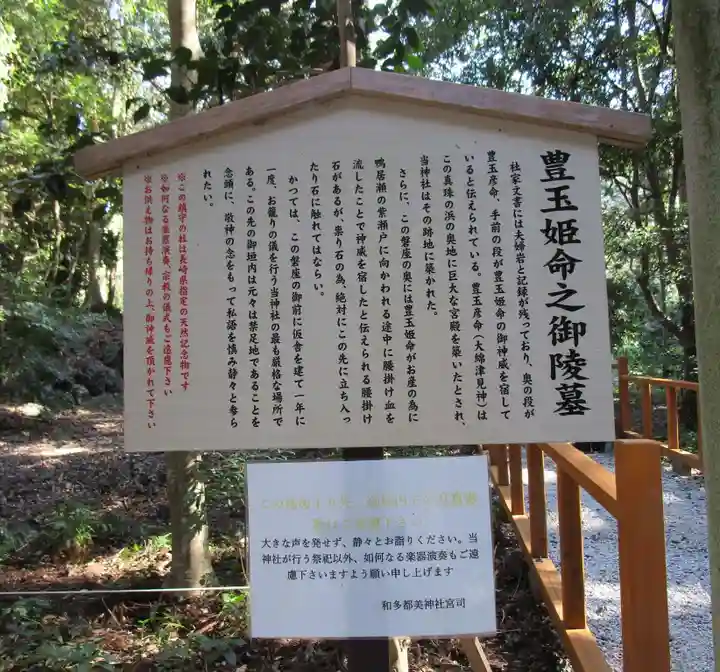 豊玉姫命之御陵墓
社家文書には夫婦岩と記録が残っており、奥の段が
豊玉彦命、手前の段が豊玉姫命の御神威を宿して
いると伝えられている。豊玉彦命(大綿津見神)は
この真珠の浜の奥地に巨大な宮殿を築いたとされ、
当神社はその跡地に築かれた。
さらに、この磐座の奥には豊玉姫命がお産の為に
鴨居瀬の紫瀬戸に向かわれる途中に腰掛け血を
流したことで神威を宿したと伝えられる腰掛け
石があるが、祟り石の為、絶対にこの先に立ち入っ
たり石に触れてはならない。
かつては、この磐座の御前に仮舎を建て一年に
一度、お籠りの儀を行う当神社の最も厳格な場所で
ある。この先の御垣内は元々は禁足地であることを
念頭に、敬神の念をもって私語を慎み静々と参ら
れたい。
※この鎮守の杜は長崎県指定の天然記念物です
※如何なる楽器演奏、宗教の儀式もご遠慮下さい
※お供え物はお持ち帰りの上、御神威を頂かれて下さい
大きな声を発せず、静々とお詣りください。当
神社が行う祭祀以外、如何なる楽器演奏もご遠
慮下さいますよう願い申し上げます
和多都美神社宮司